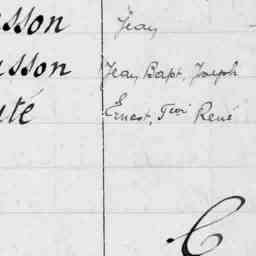 sson Jean
sson Jean Bapt. Joseph
uté Ernest, René
C